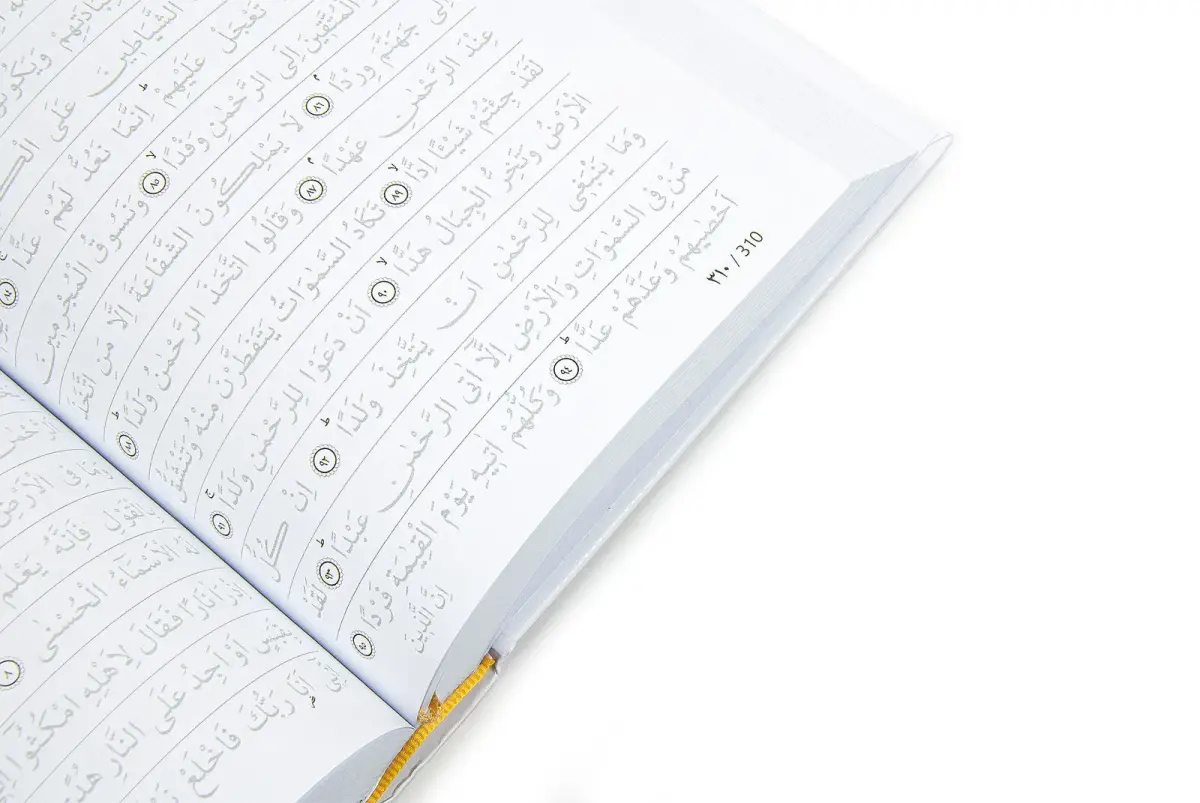 بِعِبَادَتِهِمْ
الشَّيَاطِينَ عَلَى
تَعْجَلْ عَلَيْهِمْ ۜ اِنَّمَا نَعُدُّ لَهُمْ عَدًّا ﴿٨٤﴾
الْمُتَّقِينَ اِلَى الرَّحْمٰنِ وَفْدًا ﴿٨٥﴾ وَنَسُوقُ الْمُجْرِمِينَ
اِلٰى جَهَنَّمَ وِرْدًا ﴿٨٦﴾ لَا يَمْلِكُونَ الشَّفَاعَةَ اِلَّا مَنِ اتَّخَذَ
عِنْدَ الرَّحْمٰنِ عَهْدًا ﴿٨٧﴾ وَقَالُوا اتَّخَذَ الرَّحْمٰنُ وَلَدًا ﴿٨٨﴾
لَقَدْ جِئْتُمْ شَيْـًٔا اِدًّا ﴿٨٩﴾ تَكَادُ السَّمٰوَاتُ يَتَفَطَّرْنَ مِنْهُ وَتَنْشَقُّ
الْاَرْضُ وَتَخِرُّ الْجِبَالُ هَدًّا ﴿٩٠﴾ اَنْ دَعَوْا لِلرَّحْمٰنِ وَلَدًا ﴿٩١﴾
وَمَا يَنْبَغِي لِلرَّحْمٰنِ اَنْ يَتَّخِذَ وَلَدًا ﴿٩٢﴾ اِنْ كُلُّ
مَنْ فِي السَّمٰوَاتِ وَالْاَرْضِ اِلَّا اٰتِي الرَّحْمٰنِ عَبْدًا ﴿٩٣﴾ لَقَدْ
اَحْصٰيهُمْ وَعَدَّهُمْ عَدًّا ﴿٩٤﴾ وَكُلُّهُمْ اٰتِيهِ يَوْمَ الْقِيٰمَةِ فَرْدًا ﴿٩٥﴾
اِنَّ الَّذِينَ
٣١٠ / 310
وَمَا فِي الْاَرْضِ
بِالْقَوْلِ فَاِنَّهُ يَعْلَمُ
لَهُ الْاَسْمَٓاءُ الْحُسْنٰى ﴿٨﴾
نَارًا فَقَالَ لِاَهْلِهِ امْكُثُٓوا
اَوْ اَجِدُ عَلَى النَّارِ هُدًى
اِنِّٓي اَنَا رَبُّكَ فَاخْلَعْ